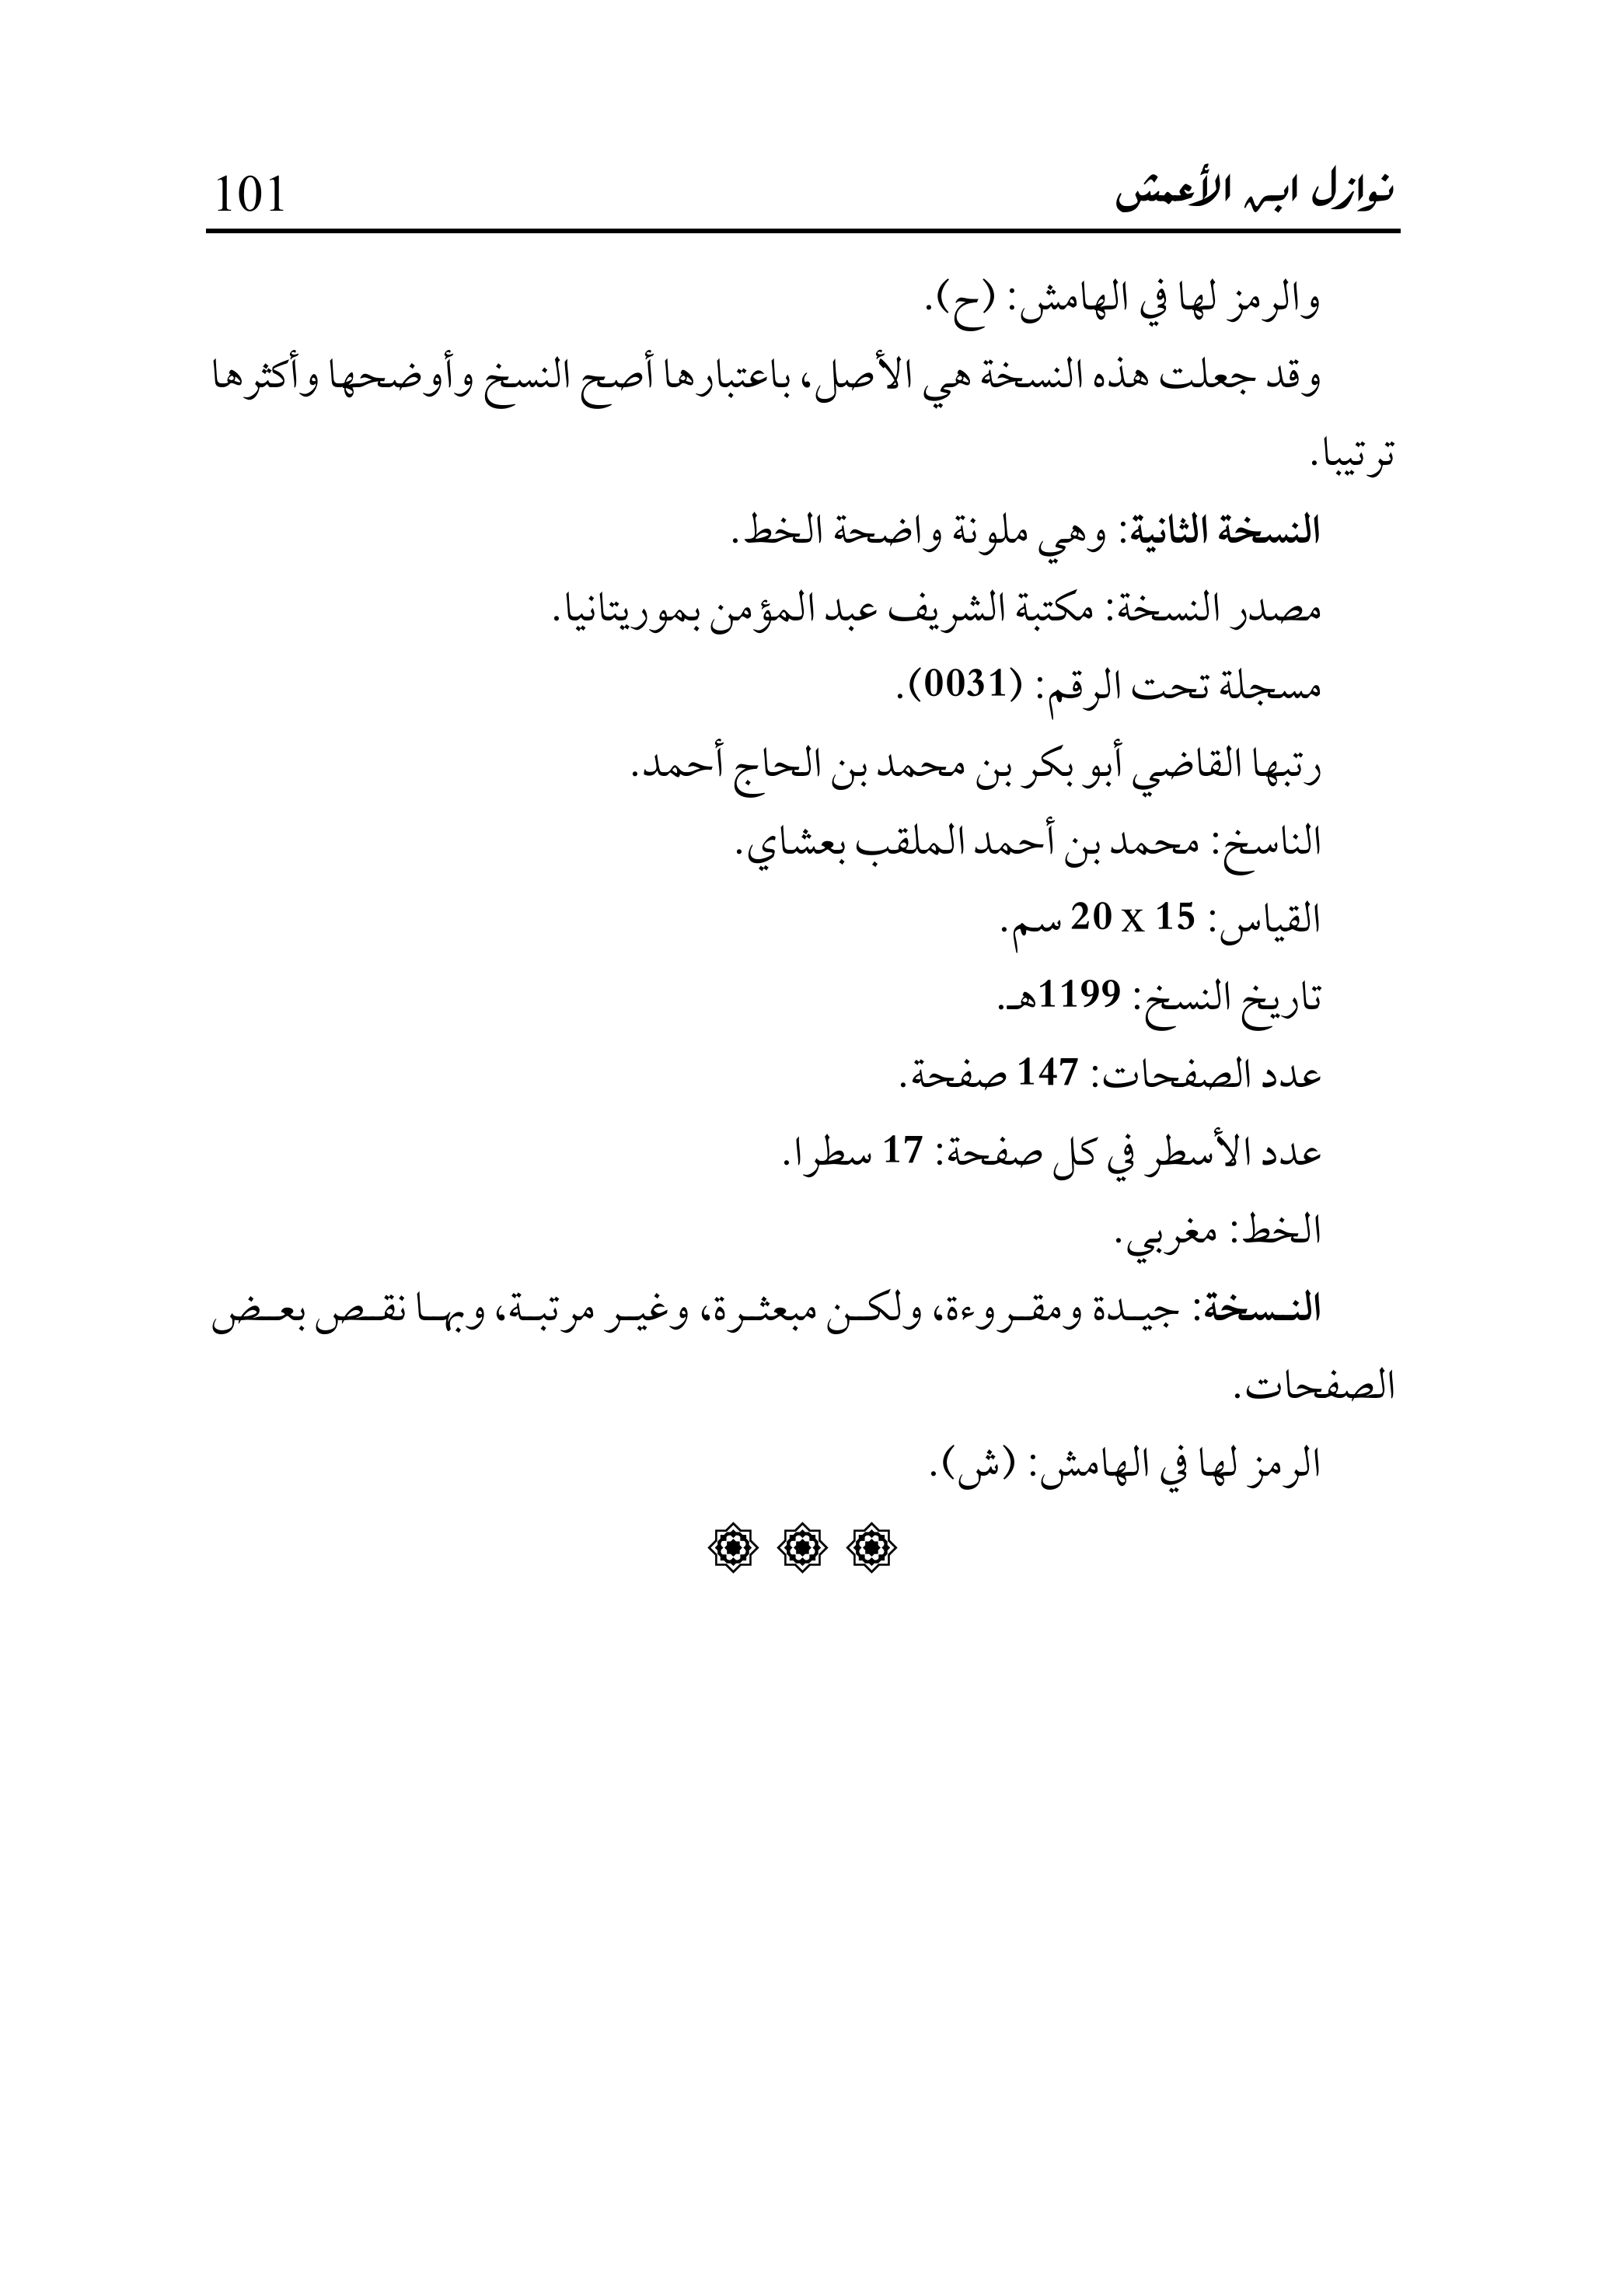 نوازل ابن الأعمش 101
والرمز لها في الهامش: (ح).
وقد جعلت هذه النسخة هي الأصل، باعتبارها أصح النسخ وأوضحها وأكثرها
ترتيبا.
النسخة الثانية: وهي ملونة واضحة الخط.
مصدر النسخة: مكتبة الشريف عبد المؤمن بموريتانيا.
مسجلة تحت الرقم: (0031).
رتبها القاضي أبو بكر بن محمد بن الحاج أحمد.
الناسخ: محمد بن أحمد الملقب بعشاي.
القياس: 15 x 20 سم.
تاريخ النسخ: 1199هـ.
عدد الصفحات: 147 صفحة.
عدد الأسطر في كل صفحة: 17 سطرا.
الخط: مغربي.
النسخة: جيدة ومقروءة، ولكن مبعثرة، وغير مرتبة، وبها نقص بعض
الصفحات.
الرمز لها في الهامش: (ش).